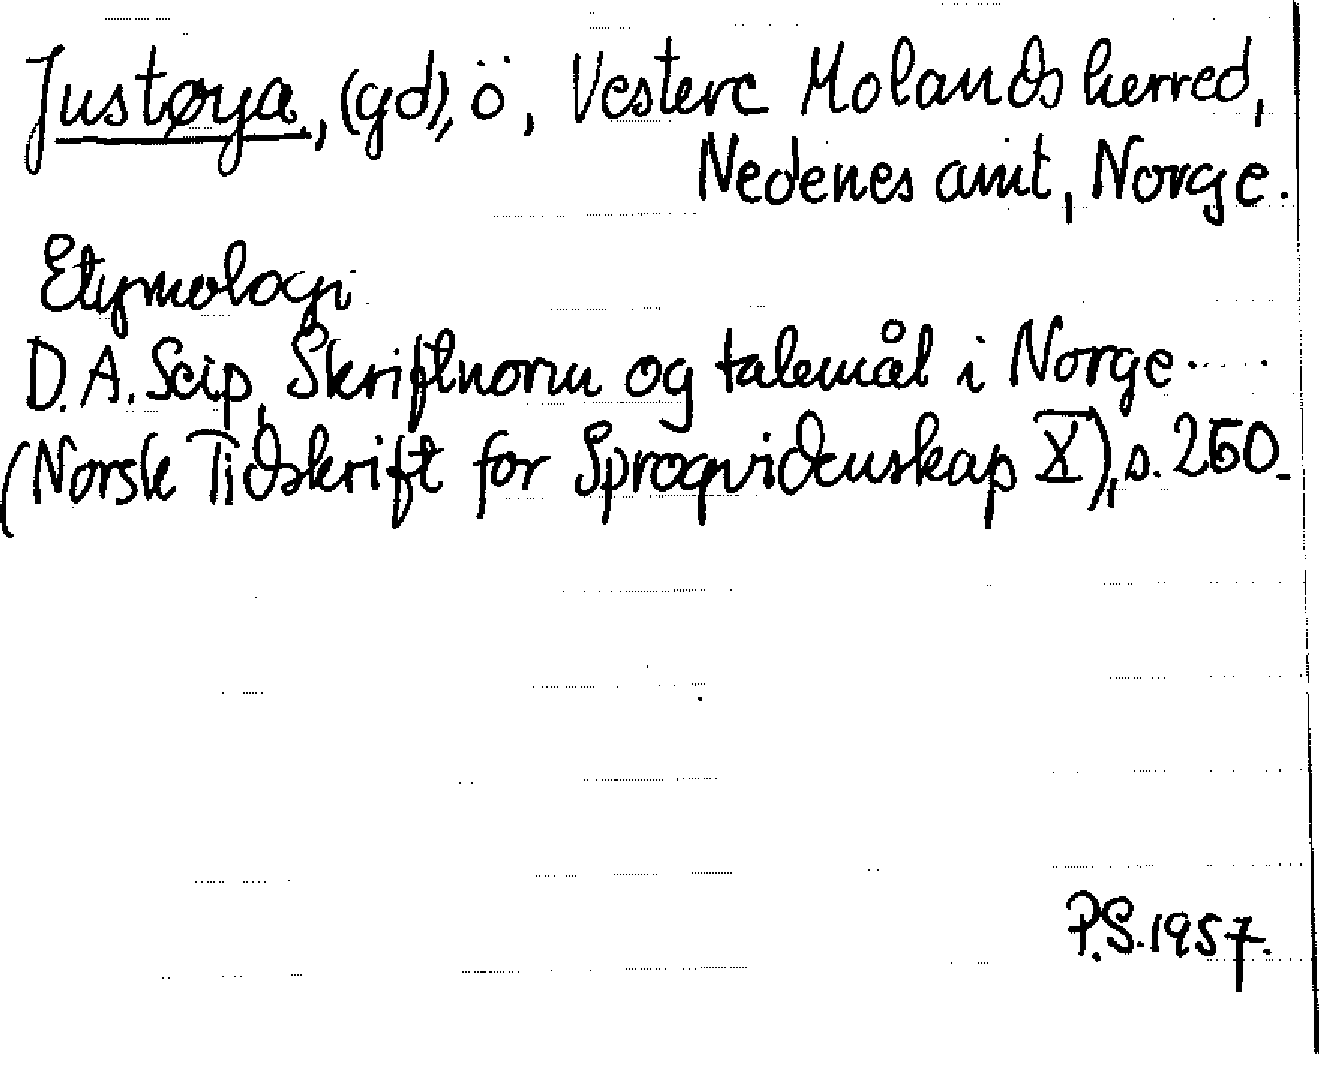 Justøya, (gd), ö, Vestere Molands herred,
Nedenes amt, Norge.
Etymologi
D.A. Seip, Skriftnorm og talemål i Norge
(Norsk Tidskrift for Sprogvidenskap X), s. 260.
P.S. 1957.